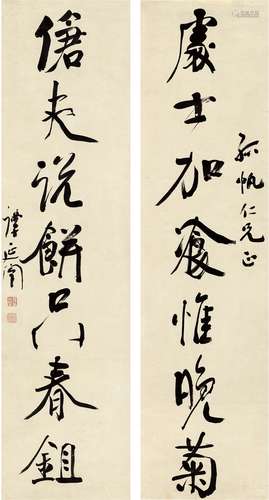 孤帆仁兄正
處士加餐惟晚菊
傖夫說餅只春鉏
譚延闓